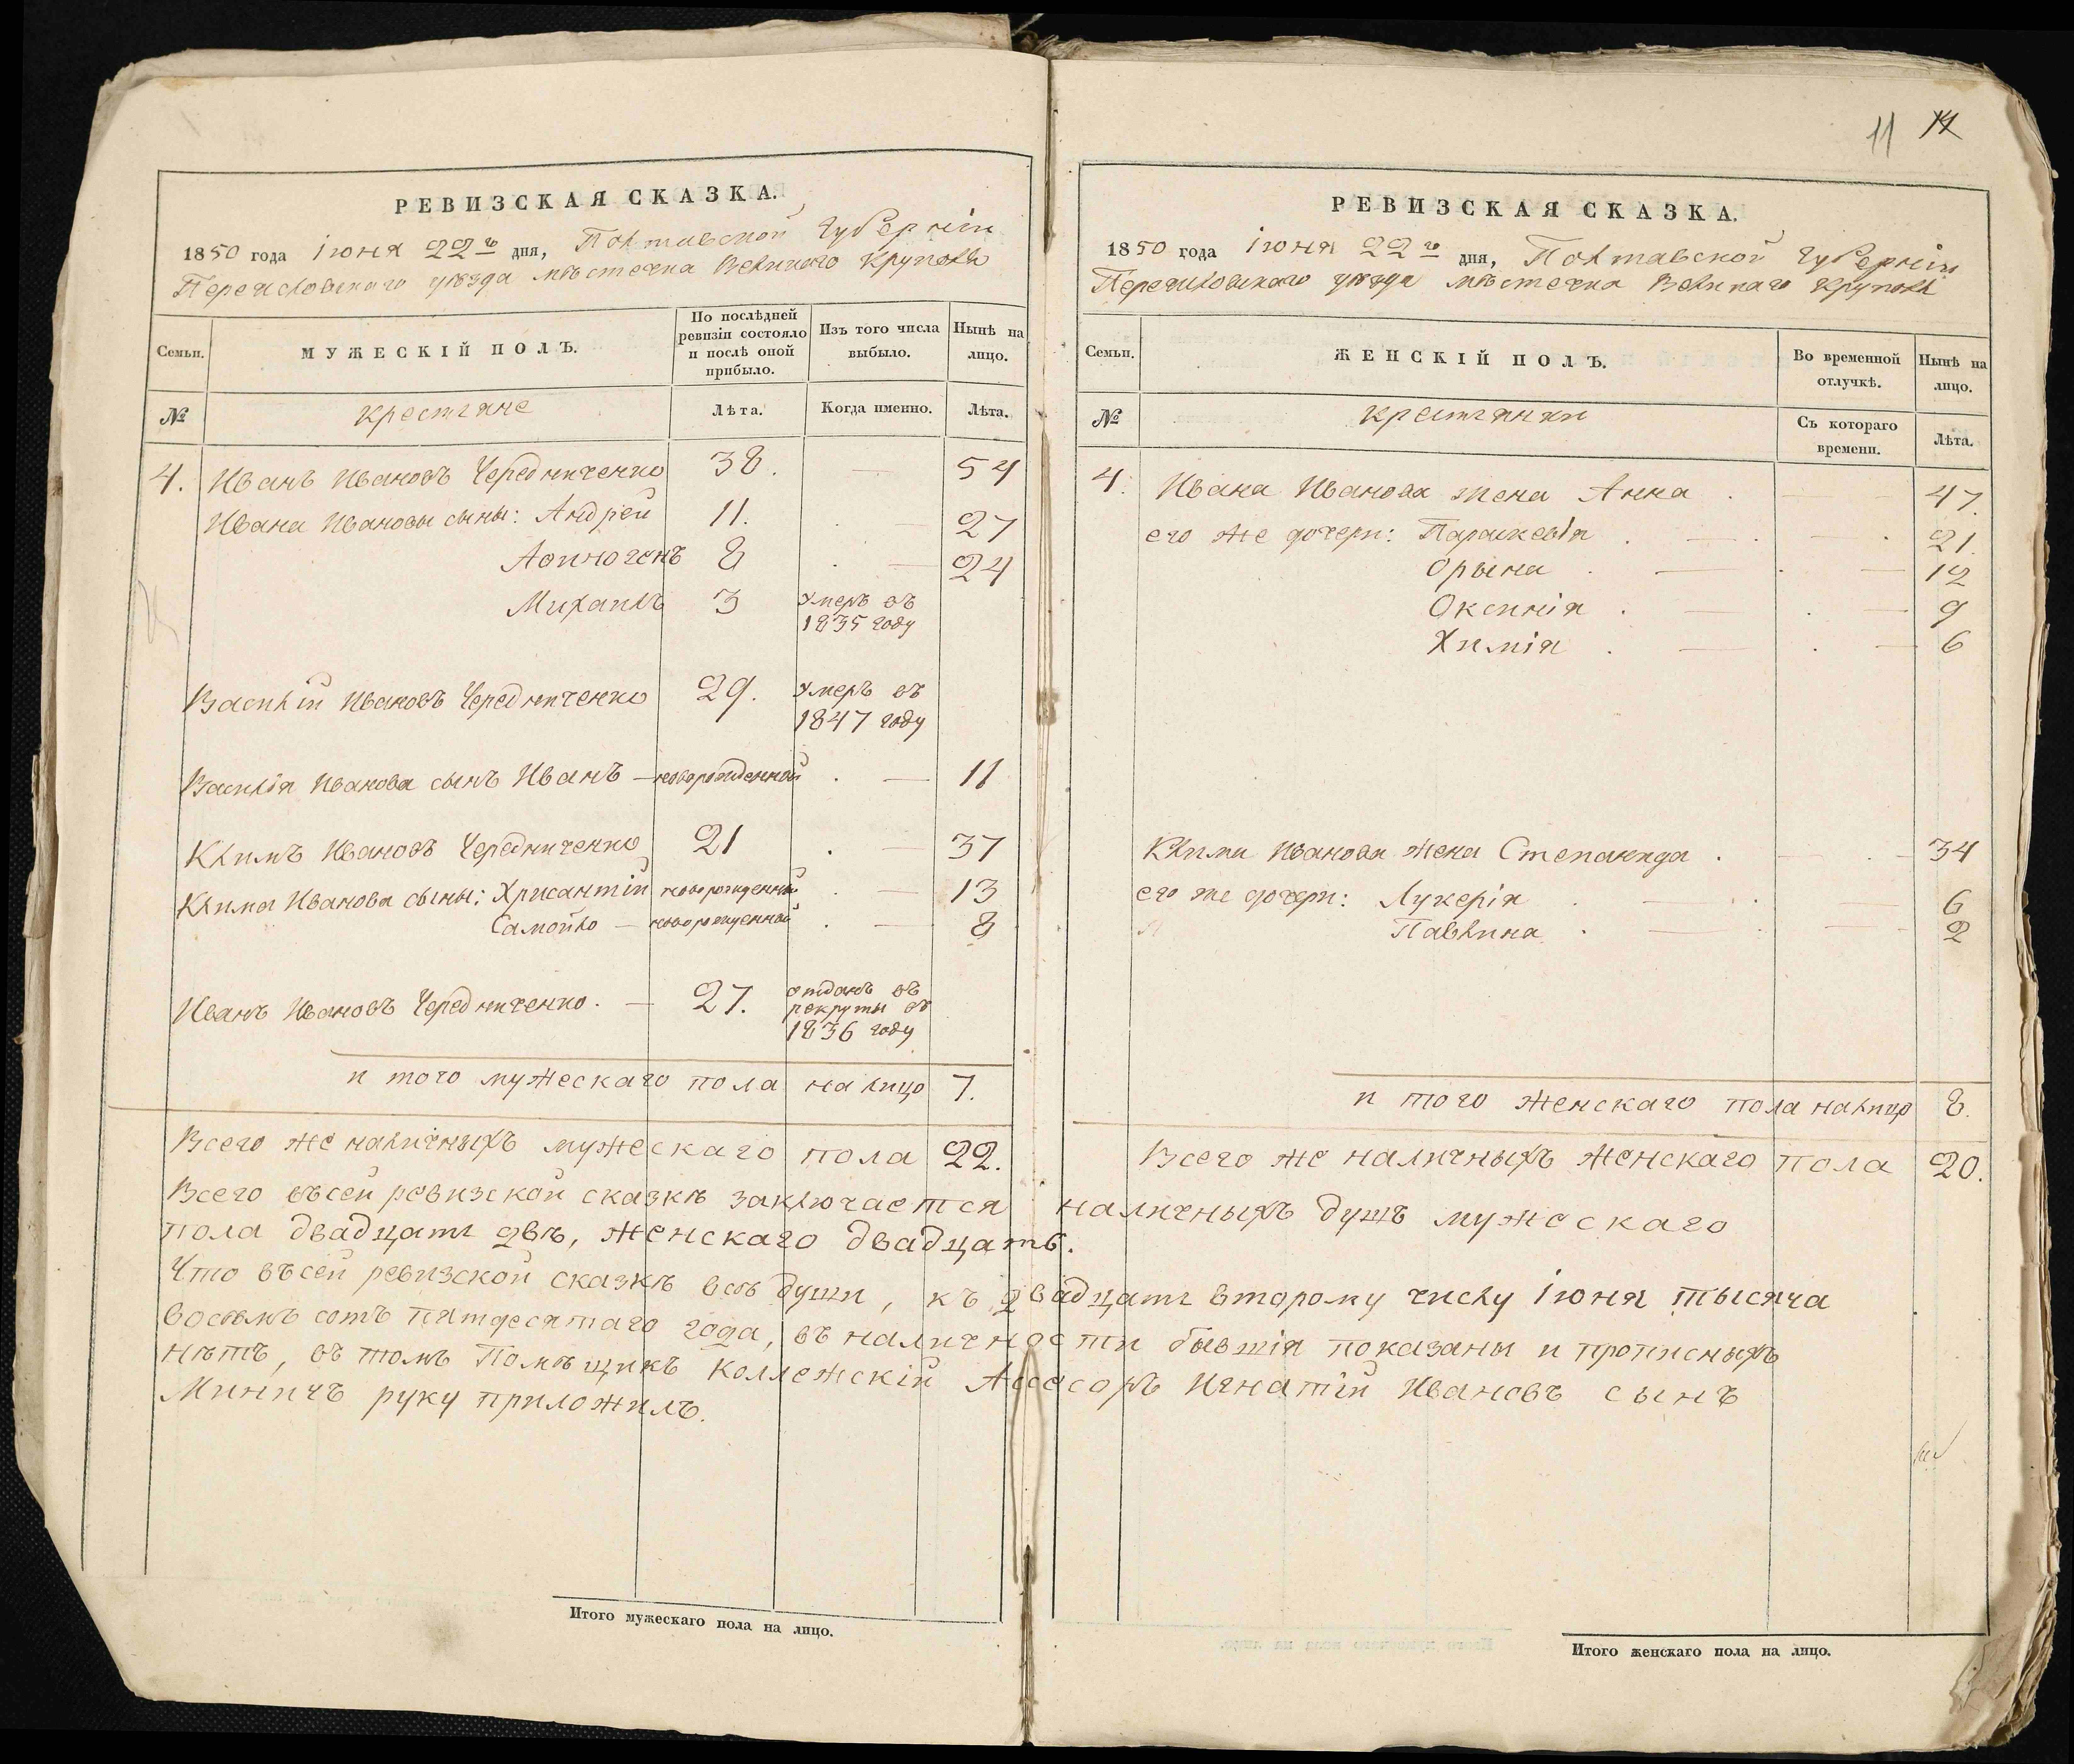 11
РЕВИЗСКАЯ СКАЗКА.
1850 года Іюня 22го дня, Полтавской Губерніи
Переясловскаго уѣзда мѣстечка Великаго Крупола
Семьи.
МУЖЕСКІЙ ПОЛЪ.
По послѣдней ревизіи состояло и послѣ оной прибыло.
Изъ того числа выбыло.
Нынѣ на лицо.
№ Крестяне Лѣта. Когда именно. Лѣта.
4. Иванъ Ивановъ Чередниченко 38. — 54
Ивана Иванова сыны: Андрей 11. 27
Афиногенъ 8 — 24
Михаилъ 3 умеръ въ
1835 году
Василій Ивановъ Чередниченко 29. умеръ въ
1847 году
Василія Иванова сынъ Иванъ — новорожденный — 11
Климъ Ивановъ Чередниченко 21 — 37
Клима Иванова сыны: Хрисантій новорожденный — 13
Самойло — новорожденный — 8
Иванъ Ивановъ Чередниченко. — 27. отданъ въ
рекруты въ
1836 году
и того мужескаго пола на лицо 7.
Всего же наличныхъ мужескаго пола 22.
РЕВИЗСКАЯ СКАЗКА.
1850 года Іюня 22го дня, Полтавской Губерніи
Переясловскаго уѣзда мѣстечка Великаго Крупола
Семьи.
ЖЕНСКІЙ ПОЛЪ.
Во временной отлучкѣ.
Нынѣ на лицо.
№ Крестянки Съ котораго времени. Лѣта.
4. Ивана Иванова жена Анна 47.
его же дочери: Параскевія 21.
Орына 12
Оксинія 9
Химія 6
Клима Иванова жена Степанида 34
его же дочери: Лукерія 6
Павлина 2
и того женскаго пола налицо 8.
Всего же наличныхъ женскаго пола 20.
Всего въсей ревизской сказкѣ заключается наличныхъ душъ мужескаго
пола двадцать двѣ, женскаго двадцать.
Что въсей ревизской сказкѣ всѣ души, къ двадцать второму числу Іюня тысяча
восѣмъ сотъ пятдесятаго года, въ наличности бывшія показаны и прописныхъ
нѣтъ, въ томъ Помѣщикъ Коллежскій Ассесоръ Игнатій Ивановъ сынъ
Миничъ руку приложилъ.
Итого мужескаго пола на лицо.
Итого женскаго пола на лицо.